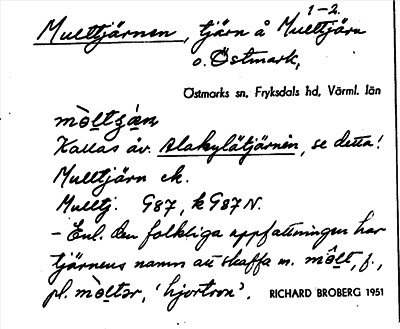 1-2.
Multtjärnen, tjärn å Multtjärn
o. Östmark,
Östmarks sn, Fryksdals hd, Värml. län
mo̯ltʒ́æn
Kallas äv. Alakylätjärnen, se detta!
Multtjärn ek.
Multtj. G87, k G87 N.
– Enl. den folkliga uppfattningen har
tjärnens namn att skaffa m. môlt, f.,
pl. mòltər, 'hjortron'. RICHARD BROBERG 1951